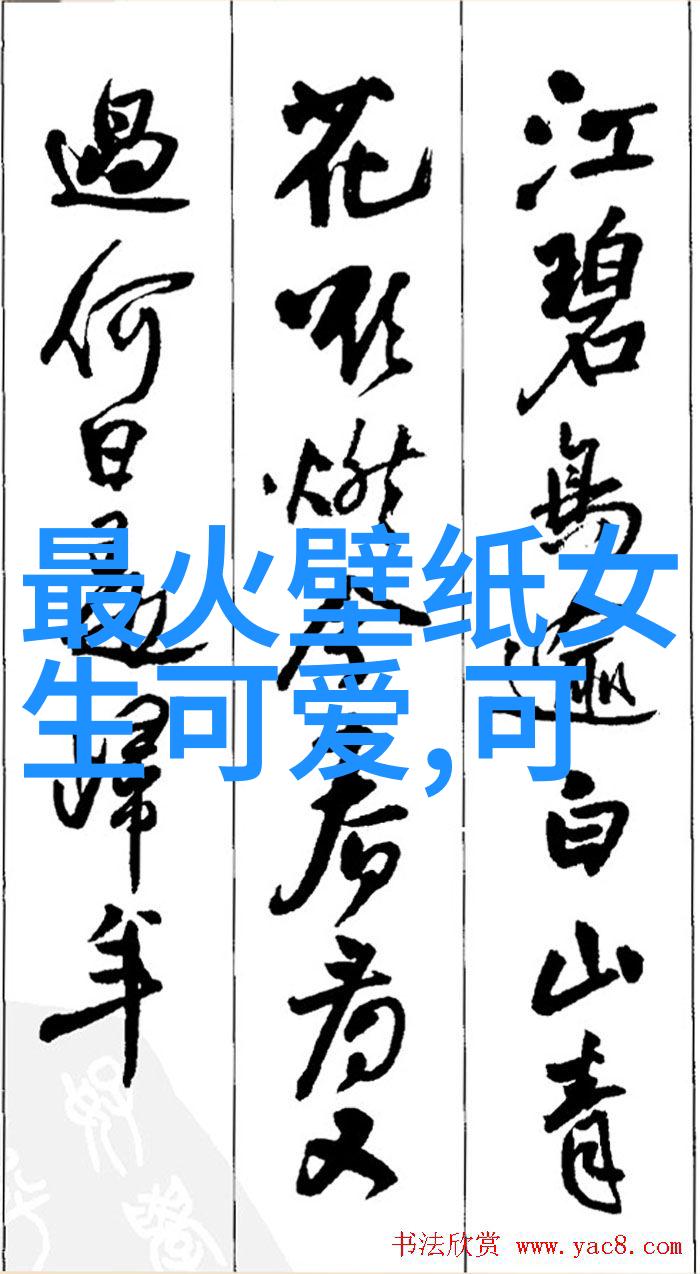 江碧鳥逾白山青
花欲燃今春看又
過何日是歸年
最火壁纸女
生可爱,可
书法欣赏 www.yac8.com